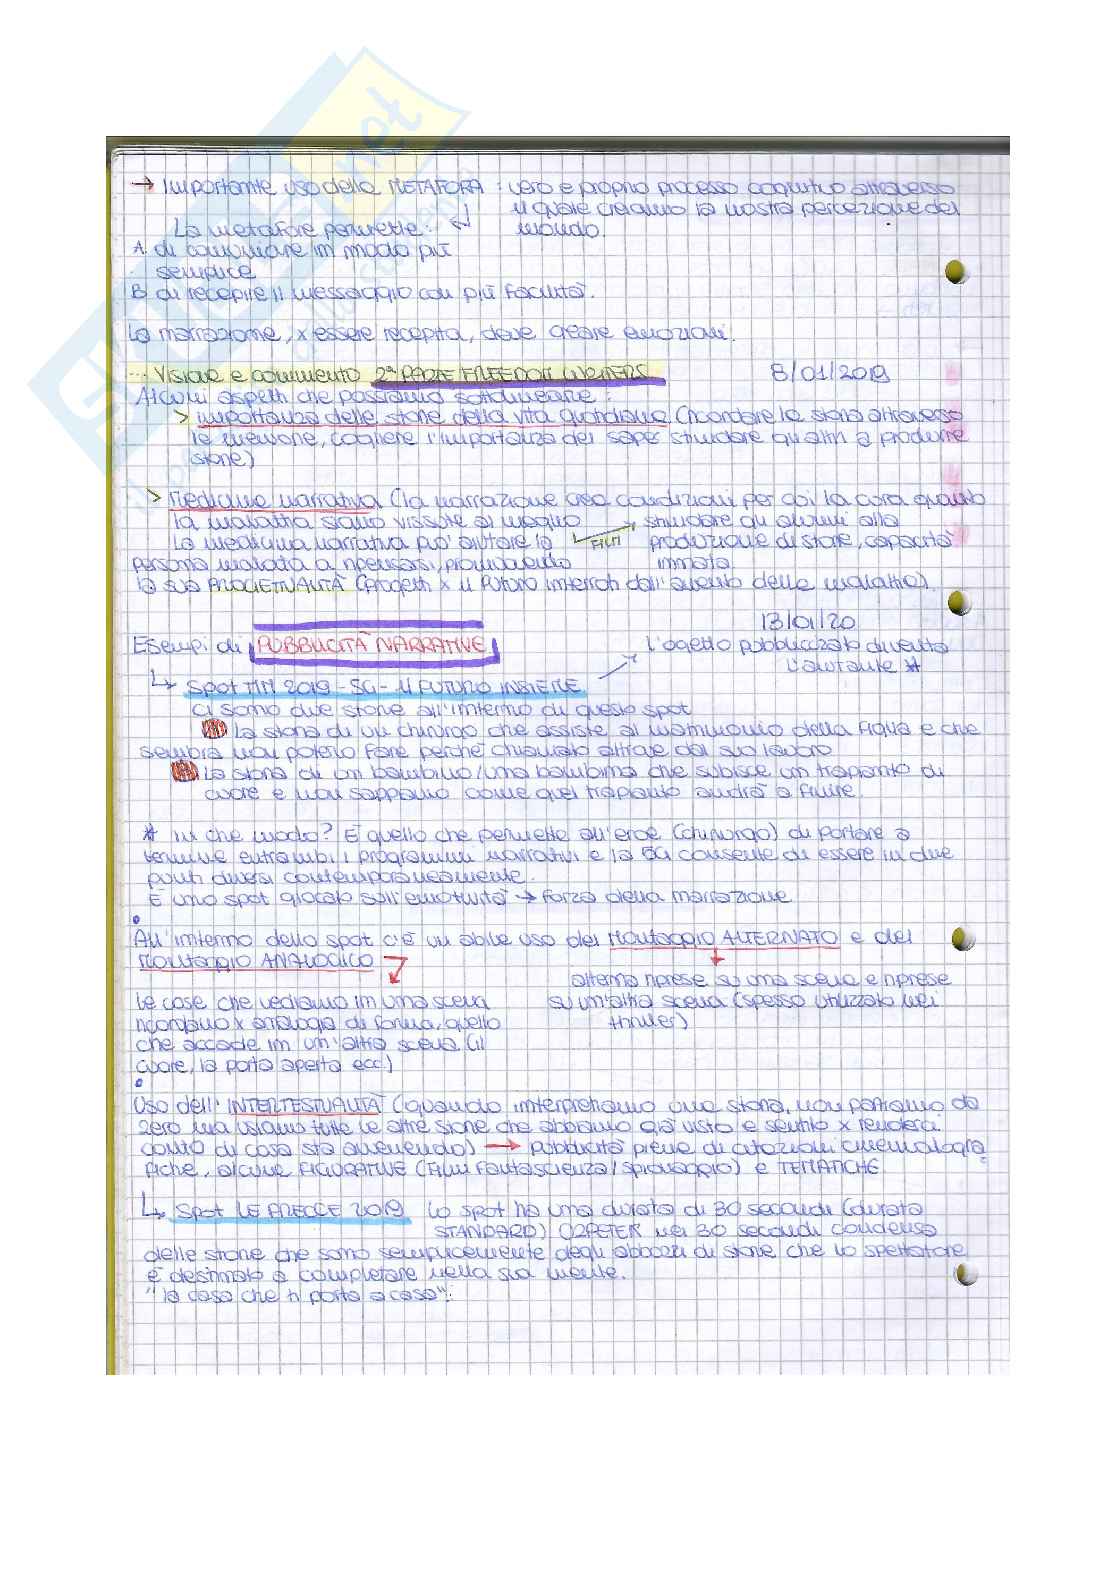 → Importante uso della METAFORA : vero e proprio processo cognitivo attraverso
il quale creiamo la nostra percezione del
mondo.
La metafore permette:
A. di comunicare in modo più
semplice
B di recepire il messaggio con più facilità.
La narrazione, x essere recepita, deve creare emozioni.
... Visione e commento 2ª PARTE FREEDOM WRITERS 8/01/2019
Alcuni aspetti che possiamo sottolineare :
> importanza delle storie della vita quotidiana (ricordare la storia attraverso
le memorie, cogliere l'importanza del saper stimolare gli altri a produrre
storie)
> Medicina narrativa (la narrazione crea condizioni per cui la cura quanto
la malattia siano vissute al meglio
La medicina narrativa può aiutare la
persona malata a ripensarsi, promuovendo
la sua PROGETTUALITÀ (progetti x il futuro interrotti dall'avvento della malattia).
FILM
stimolare gli alunni alla
produzione di storie, capacità
innata
13/01/20
Esempi di PUBBLICITÀ NARRATIVE
l'oggetto pubblicizzato diventa
l'aiutante *
↳ Spot TIM 2019 - 5G - il FUTURO INSIEME
Ci sono due storie all'interno di questo spot
La storia di un chirurgo che assiste al matrimonio della figlia e che
sembra non poterlo fare perché chiamato altrove dal suo lavoro
La storia di un bambino/una bambina che subisce un trapianto di
cuore e non sappiamo come quel trapianto andrà a finire.
* in che modo? È quello che permette all'eroe (chirurgo) di portare a
termine entrambi i programmi narrativi e la 5G consente di essere in due
punti diversi contemporaneamente.
È uno spot giocato sull'emotività → forza della narrazione
All'interno dello spot c'è un abile uso del Montaggio ALTERNATO e del
Montaggio ANALOGICO
alterna riprese su una scena e riprese
su un'altra scena (spesso utilizzato nei
thriller)
Le cose che vediamo in una scena
ricordano x analogia di forma, quello
che accade in un'altra scena (il
cuore, la porta aperta ecc.)
Uso dell'INTERTESTUALITÀ (quando interpretiamo una storia, non partiamo da
zero ma usiamo tutte le altre storie che abbiamo già visto e sentito x renderci
conto di cosa sta avvenendo) → Pubblicità piene di citazioni cinematogra
fiche, alcune FIGURATIVE (Film fantascienza/spionaggio) e TEMATICHE
↳ Spot LE FRECCE 2019 Lo spot ha una durata di 30 secondi (durata
STANDARD) OZPETEK nei 30 secondi condensa
delle storie che sono semplicemente degli abbozzi di storie che lo spettatore
è destinato a completare nella sua mente.
"la casa che ti porta a casa":